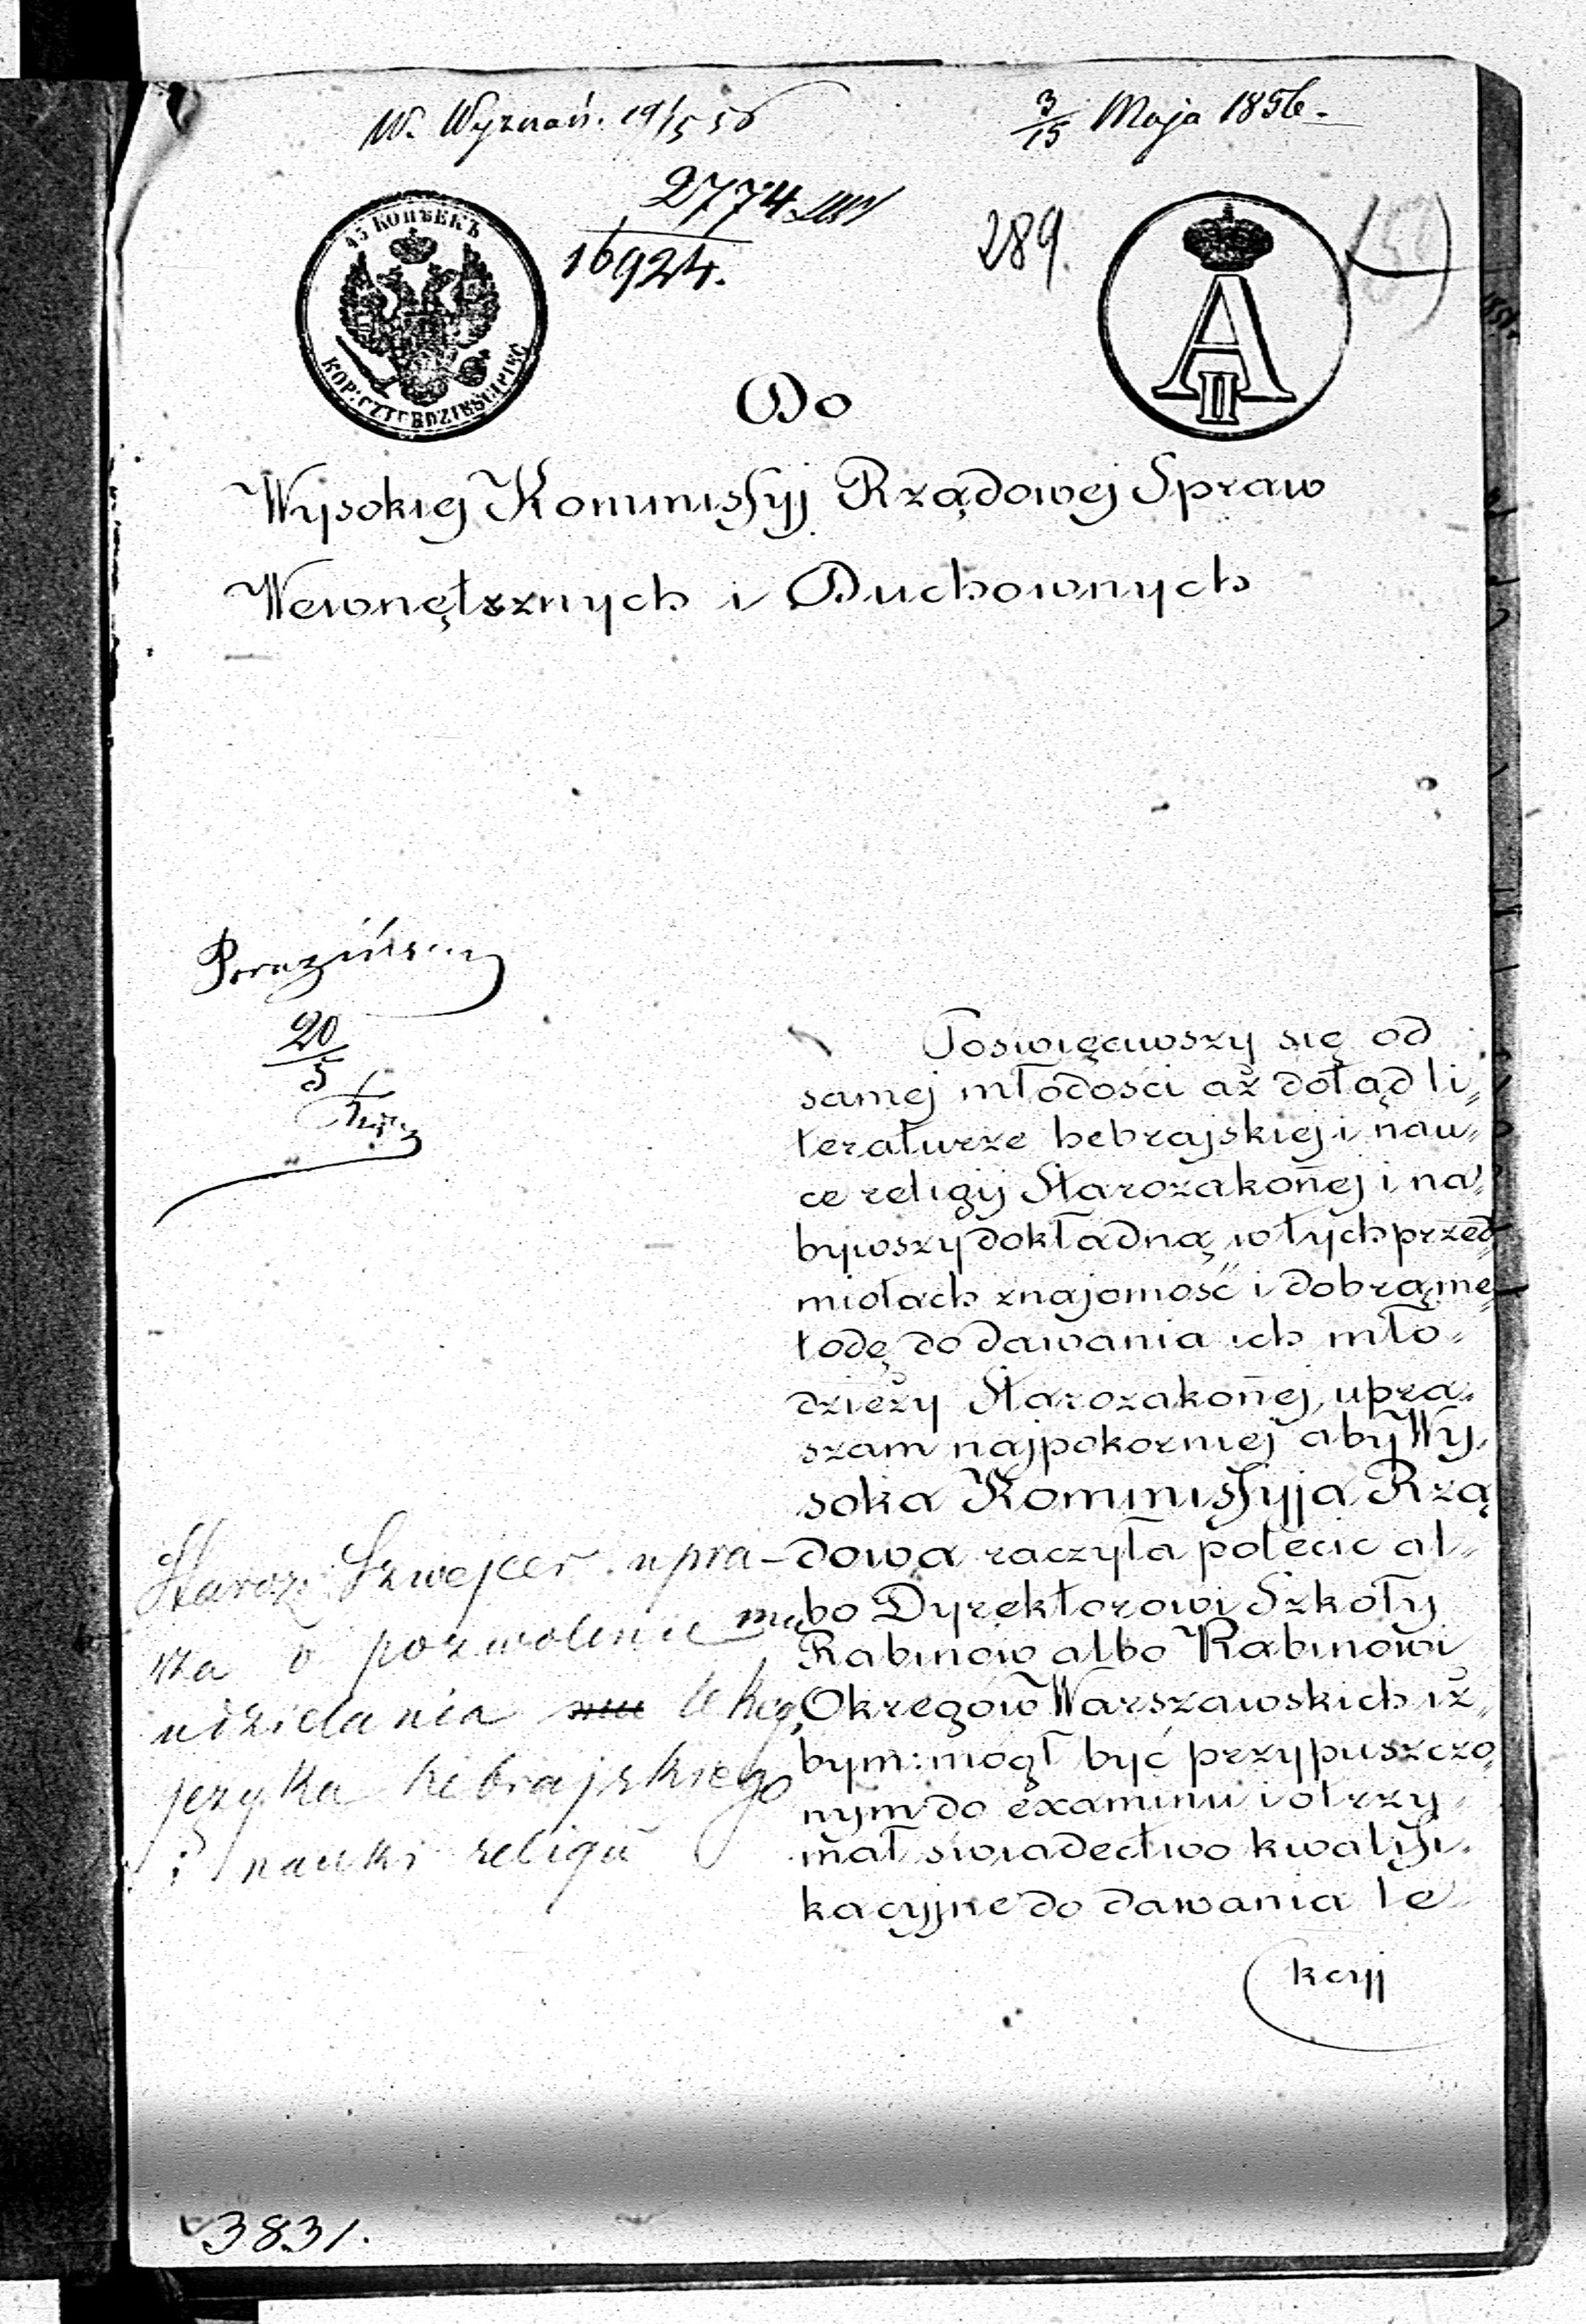 W. Wyznań. 19/5 56
3/15 Maja 1856.
2774
16924.
289.
45 КОПѢЕКЪ
KOP: CZTERDZIEŚCI PIĘĆ
A II
Do
Wysokiej Kommissyj Rządowej Spraw
Wewnętrznych i Duchownych
20/5
Poświęciwszy się od
samej młodości aż dotąd li„
teraturze hebrajskiej i nau„
ce religij Starozakon̄ej i na„
bywszy dokładną w tych przed„
miotach znajomość i dobrą me„
todę do dawania ich mło„
dzieży Starozakon̄ej, upra„
szam najpokorniej aby Wy„
soka Kommissyja Rzą
dowa raczyła polecic al„
bo Dyrektorowi Szkoły
Rabinów albo Rabinowi
Okregów Warszawskich iż„
bym: mógł być przypuszczo„
nym do examinu i otrzy„
mał swiadectwo kwalifi„
kacyjne do dawania le
kcyj
Staroz. Szwejcer upra–
sza o pozwolenie mu
udzielania mu lekcyj
języka hebrajskiego
i nauki religii
3831.